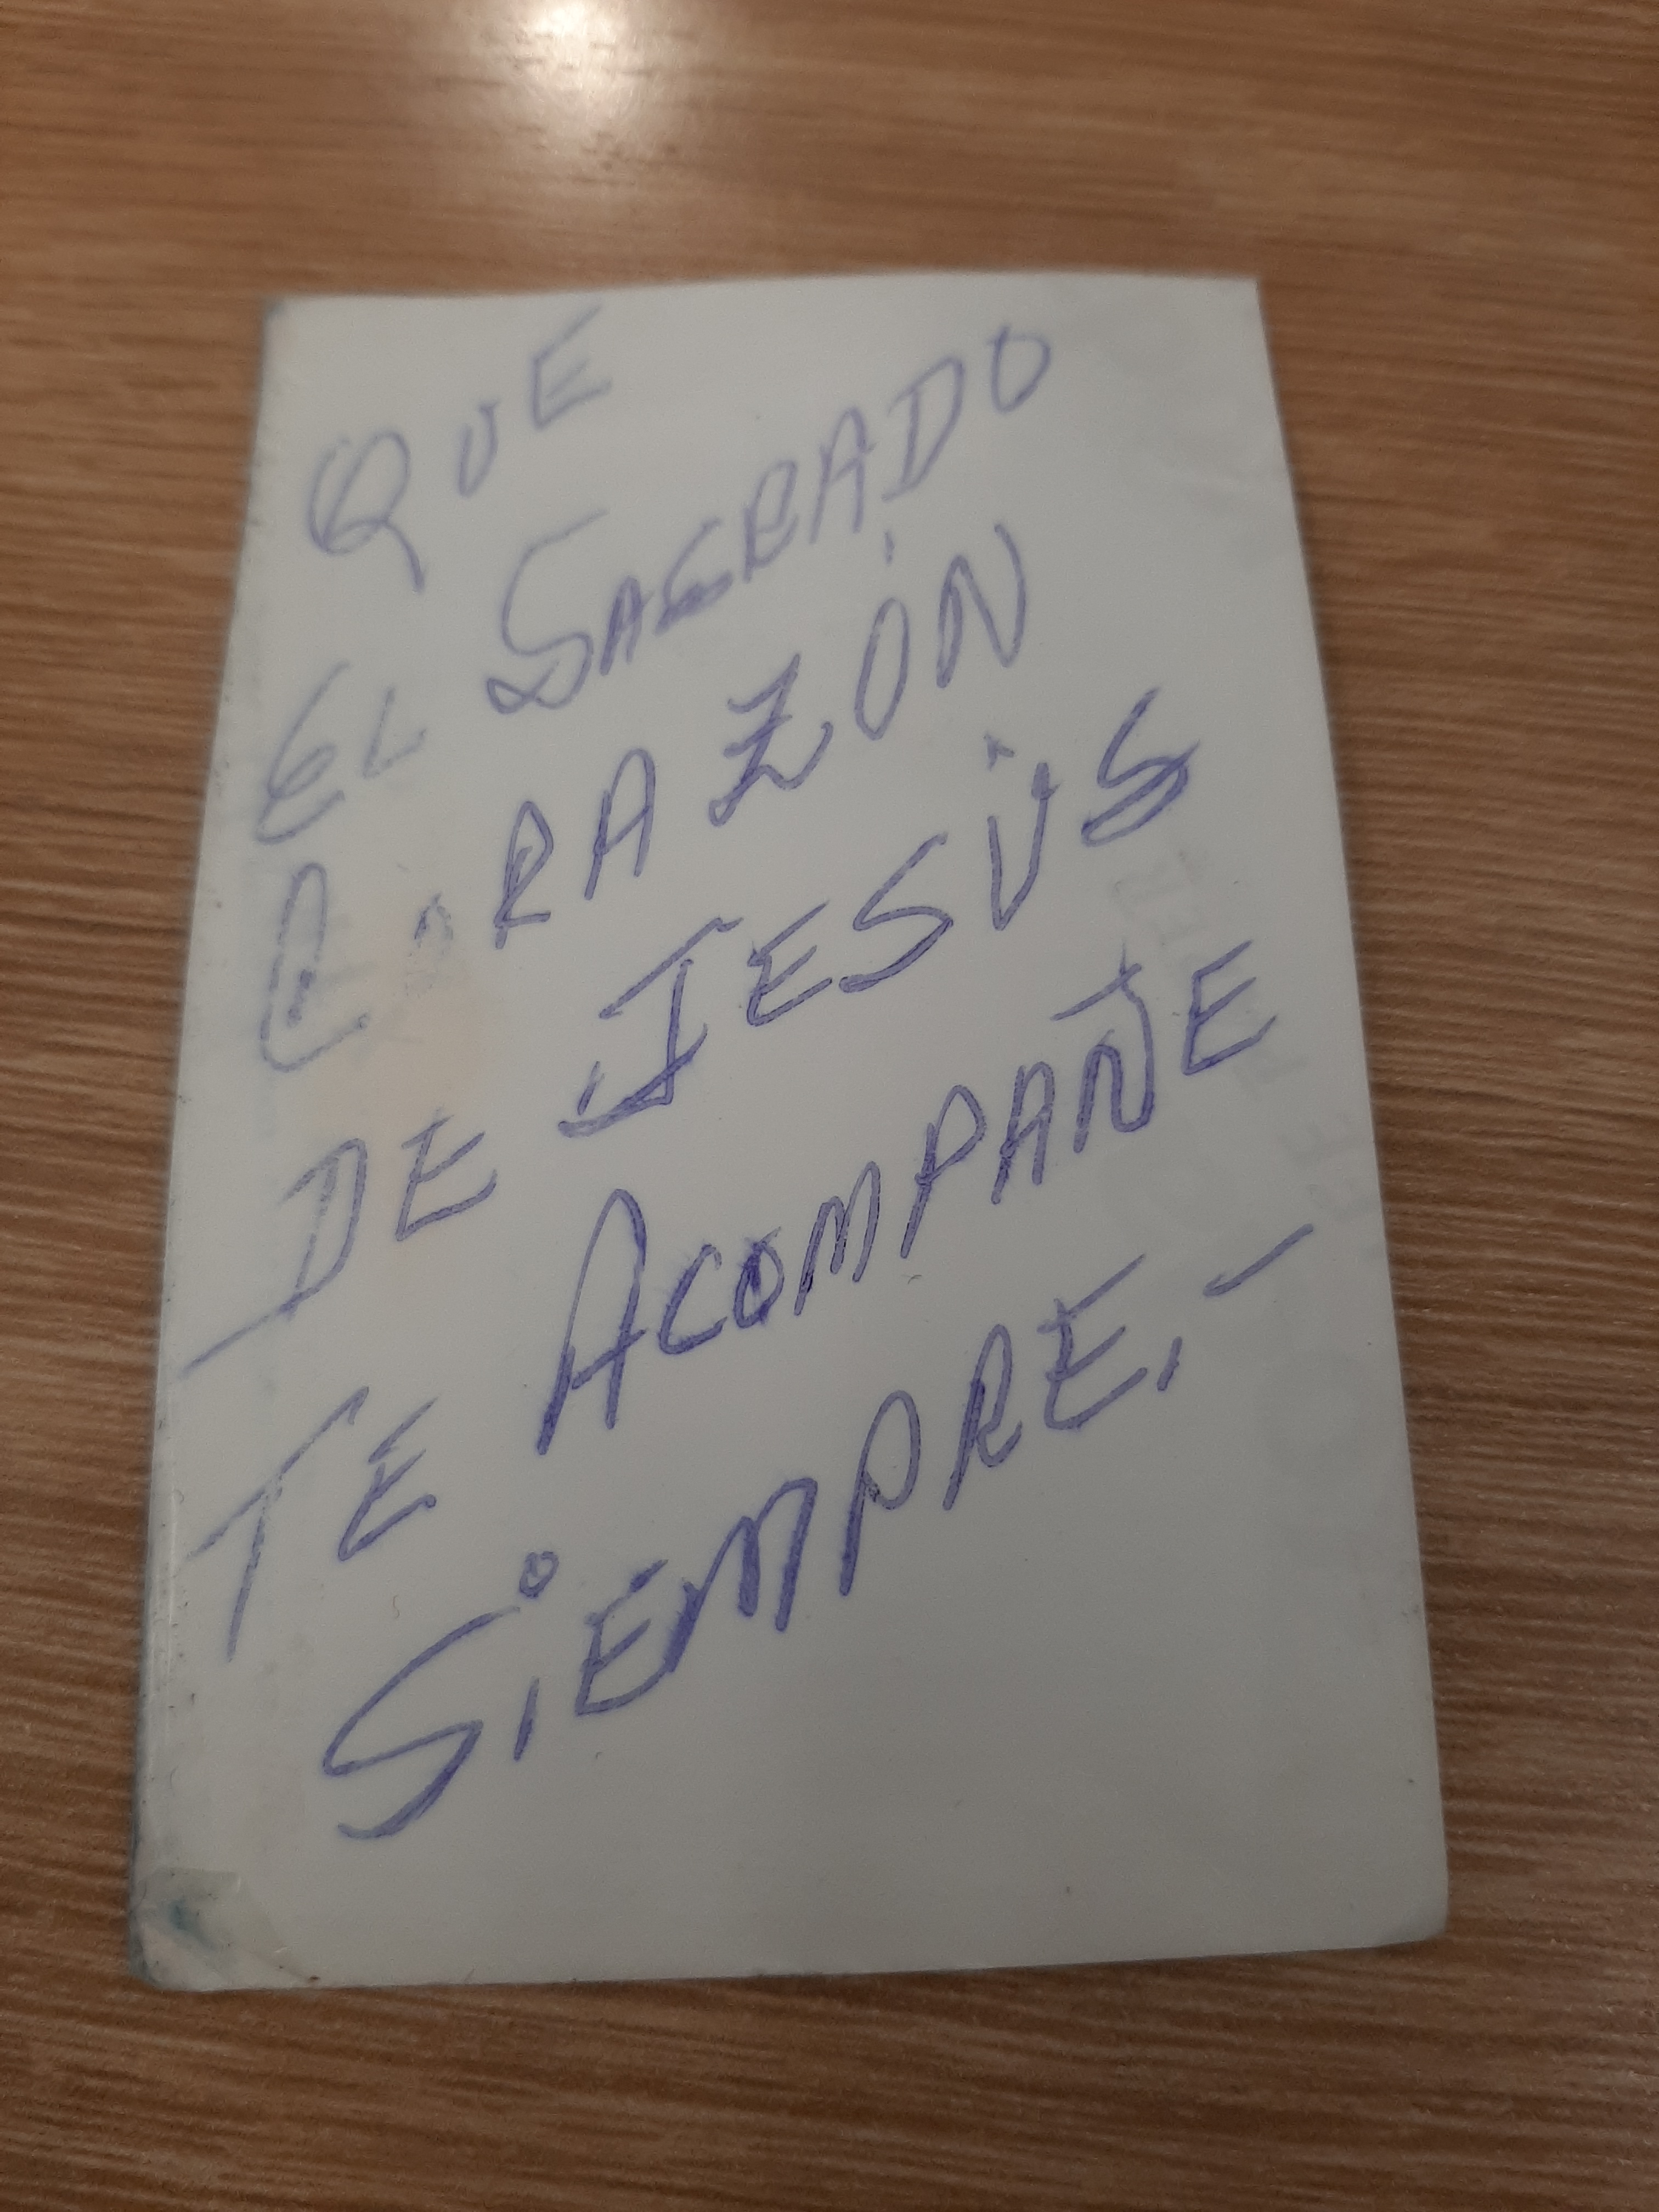 QUE
EL SAGRADO
CORAZÓN
DE JESÚS
TE ACOMPAÑE
SiEMPRE.-